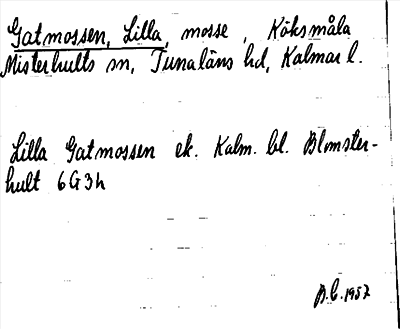 Gatmossen, Lilla, mosse, Köksmåla
Misterhults sn, Tunaläns hd, Kalmar l.
Lilla Gatmossen ek. Kalm. bl. Blomster-
hult 6G3h
B.C. 1957